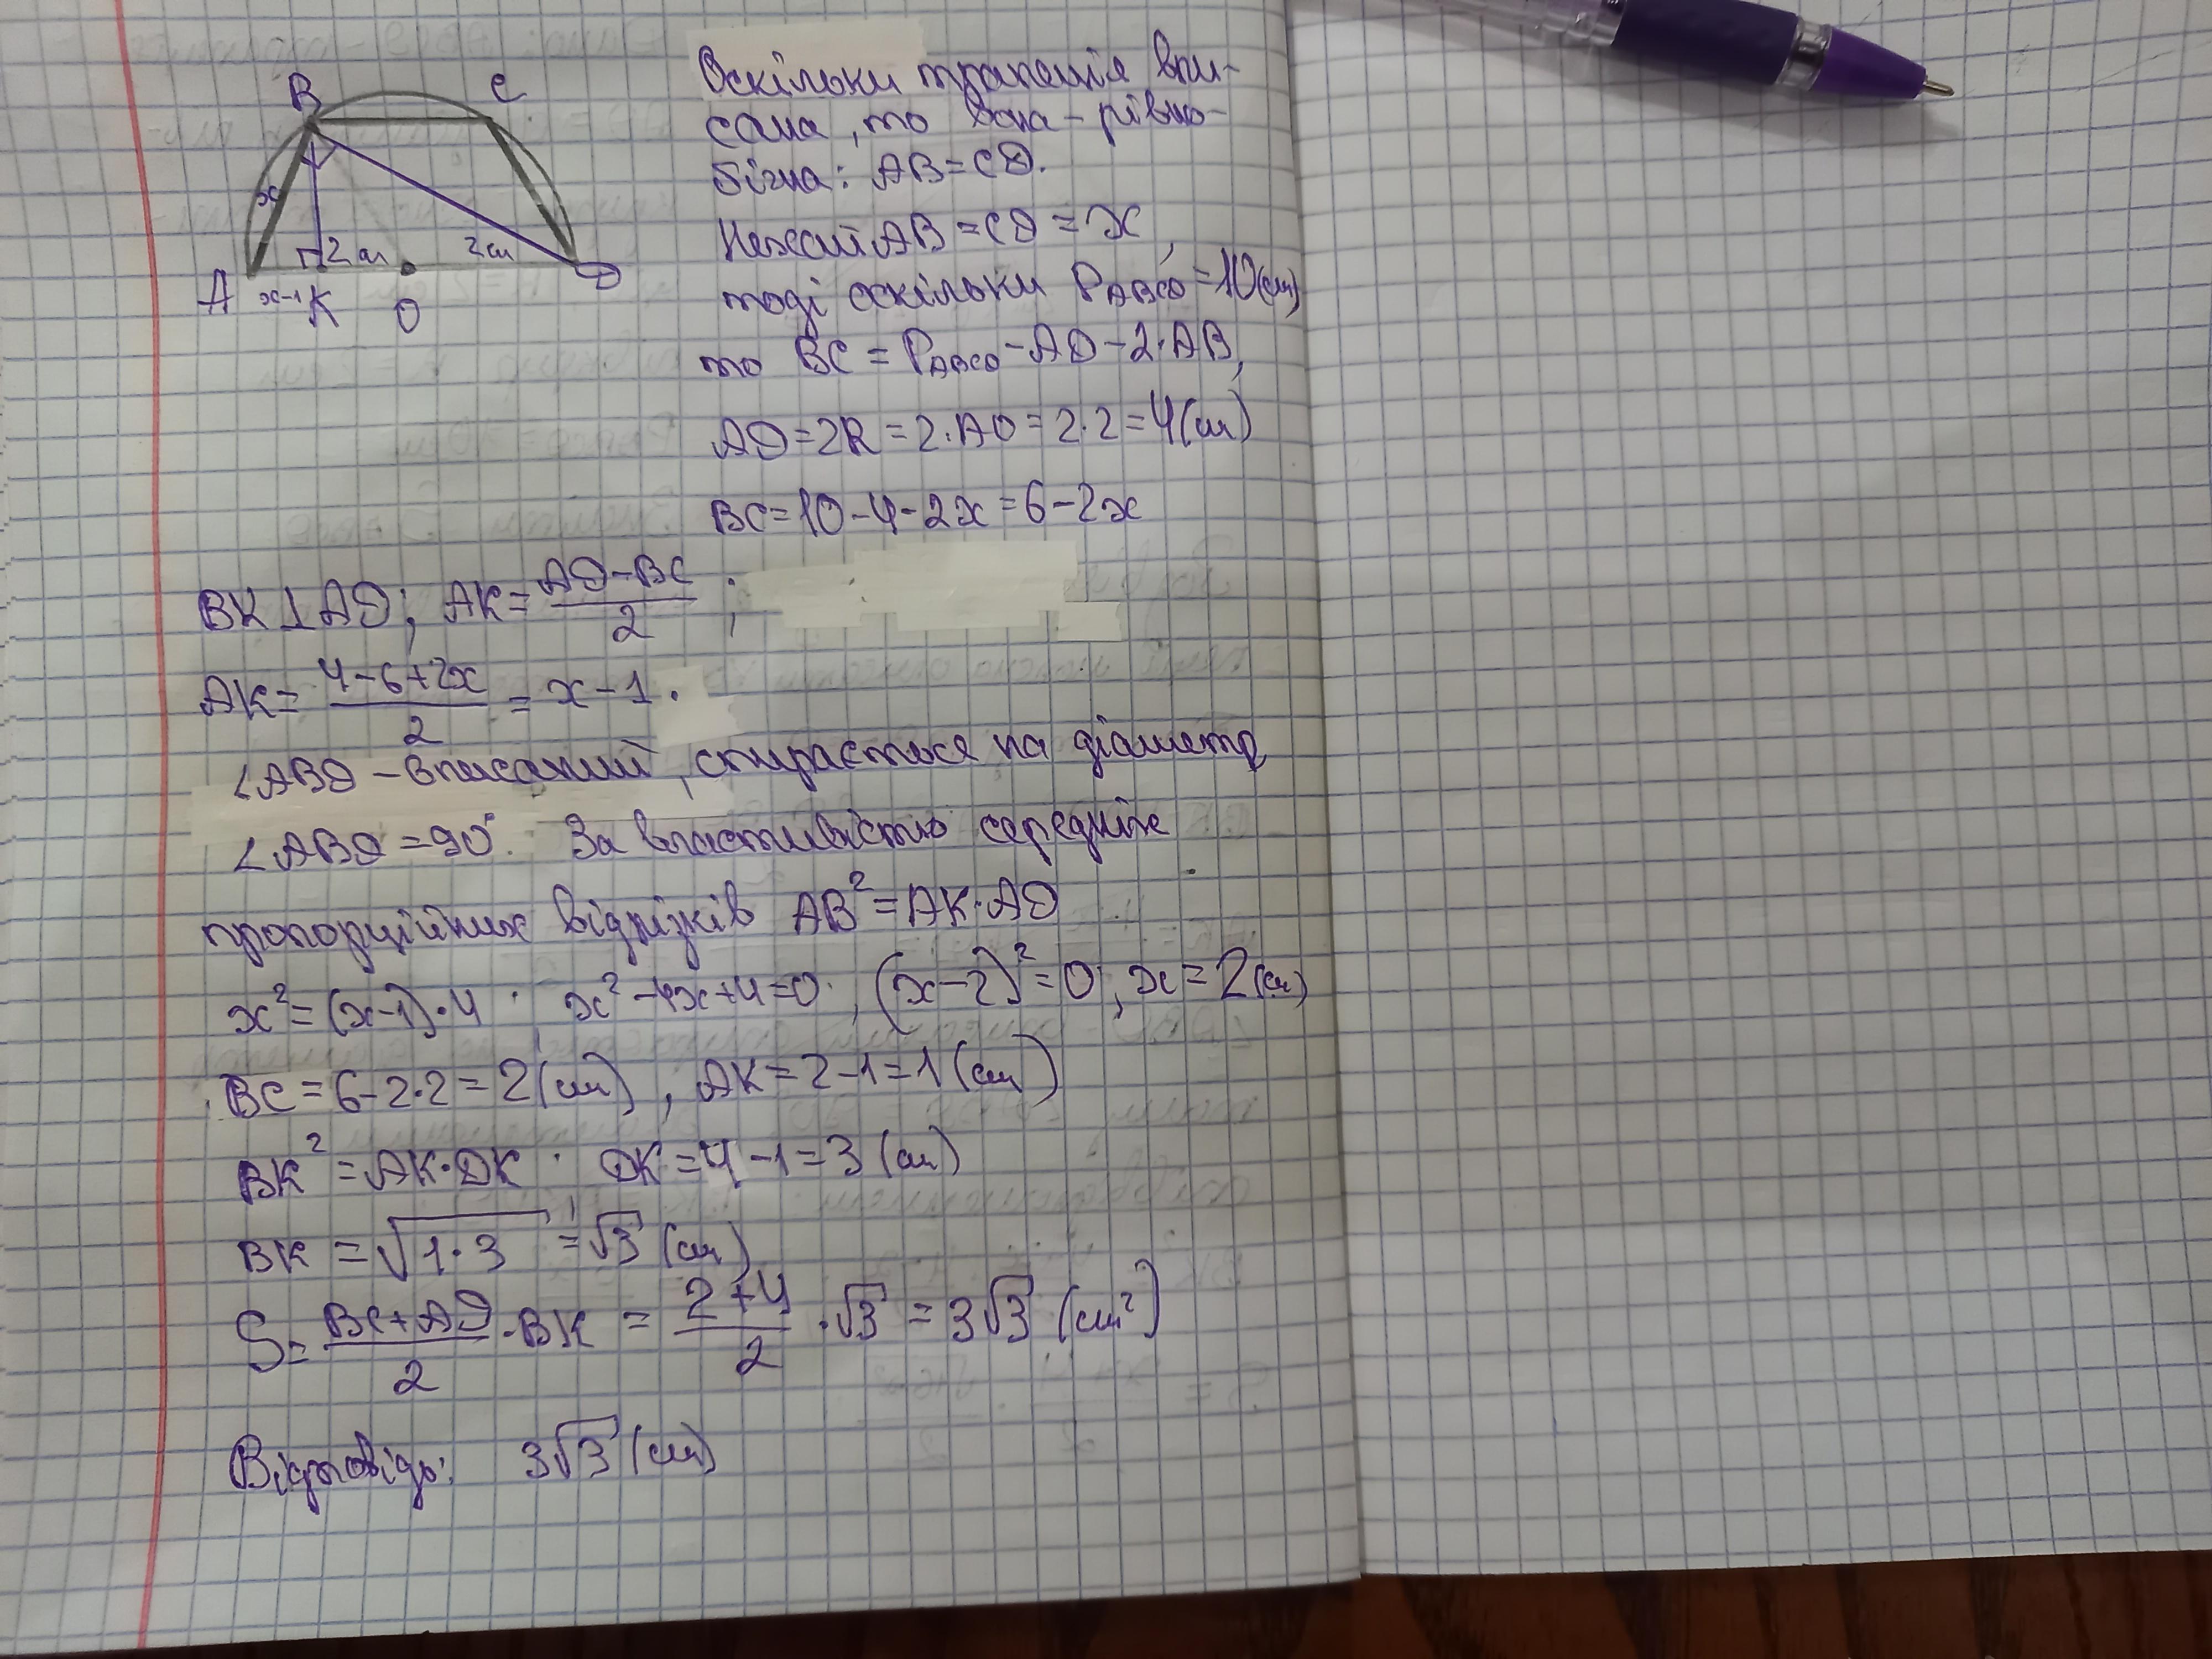 B
C
x
2см
2см
A
x-1
K
O
D
Оскільки трапеція впи-
сана, то вона - рівно-
бічна: AB=CD.
Нехай AB=CD=x,
тоді оскільки P_ABCD=10(см)
то BC = P_ABCD-AD-2·AB,
AD=2R=2·AO=2·2=4(см)
BC=10-4-2x=6-2x
BK⊥AD; AK=(AD-BC)/2;
AK=(4-6+2x)/2=x-1.
∠ABD - вписаний, спирається на діаметр
∠ABD=90°. За властивістю середніх
пропорційних відрізків AB²=AK·AD
x²=(x-1)·4; x²-4x+4=0; (x-2)²=0; x=2(см)
BC=6-2·2=2(см), AK=2-1=1(см)
BK²=AK·DK; DK=4-1=3(см)
BK=√(1·3)=√3(см)
S=(BC+AD)/2·BK=(2+4)/2·√3=3√3(см²)
Відповідь: 3√3(см)